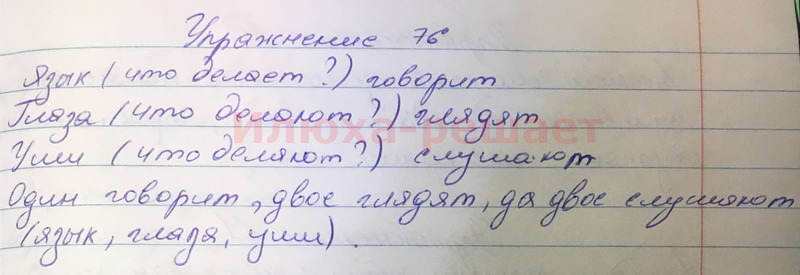 Упражнение 76
Язык (что делает?) говорит
Глаза (что делают?) глядят
Илюха-решает
Уши (что делают?) слушают
Один говорит, двое глядят, да двое слушают
(язык, глаза, уши).